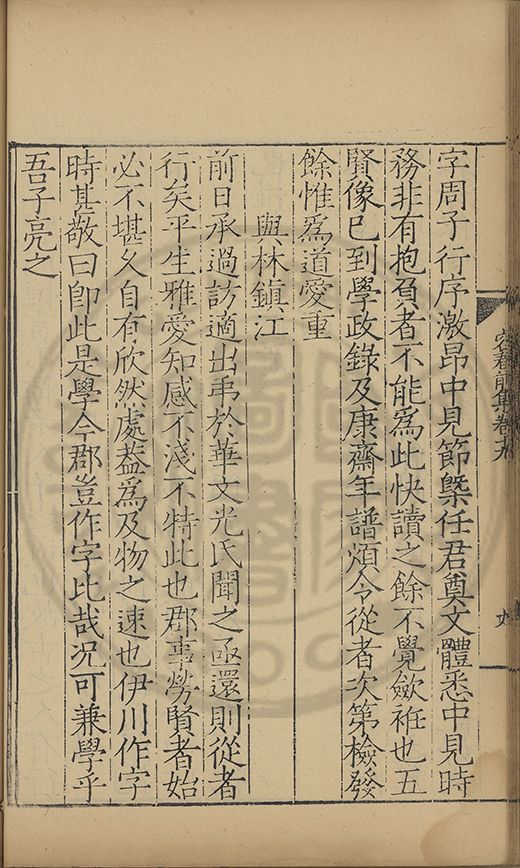 字周子行序激昂中見節槩任君奠文體悉中見時
務非有抱負者不能爲此快讀之餘不覺歛袵也五
賢像已到學政錄及康齋年譜煩令從者次第檢發
餘惟爲道愛重
與林鎮江
前日承過訪適出弔於華文光氏聞之亟還則從者
行矣平生雅愛知感不淺不特此也郡事勞賢者始
必不堪久自有欣然處葢爲及物之速也伊川作字
時甚敬曰卽此是學今郡豈作字比哉况可兼學乎
吾子亮之
容春前集卷九
九